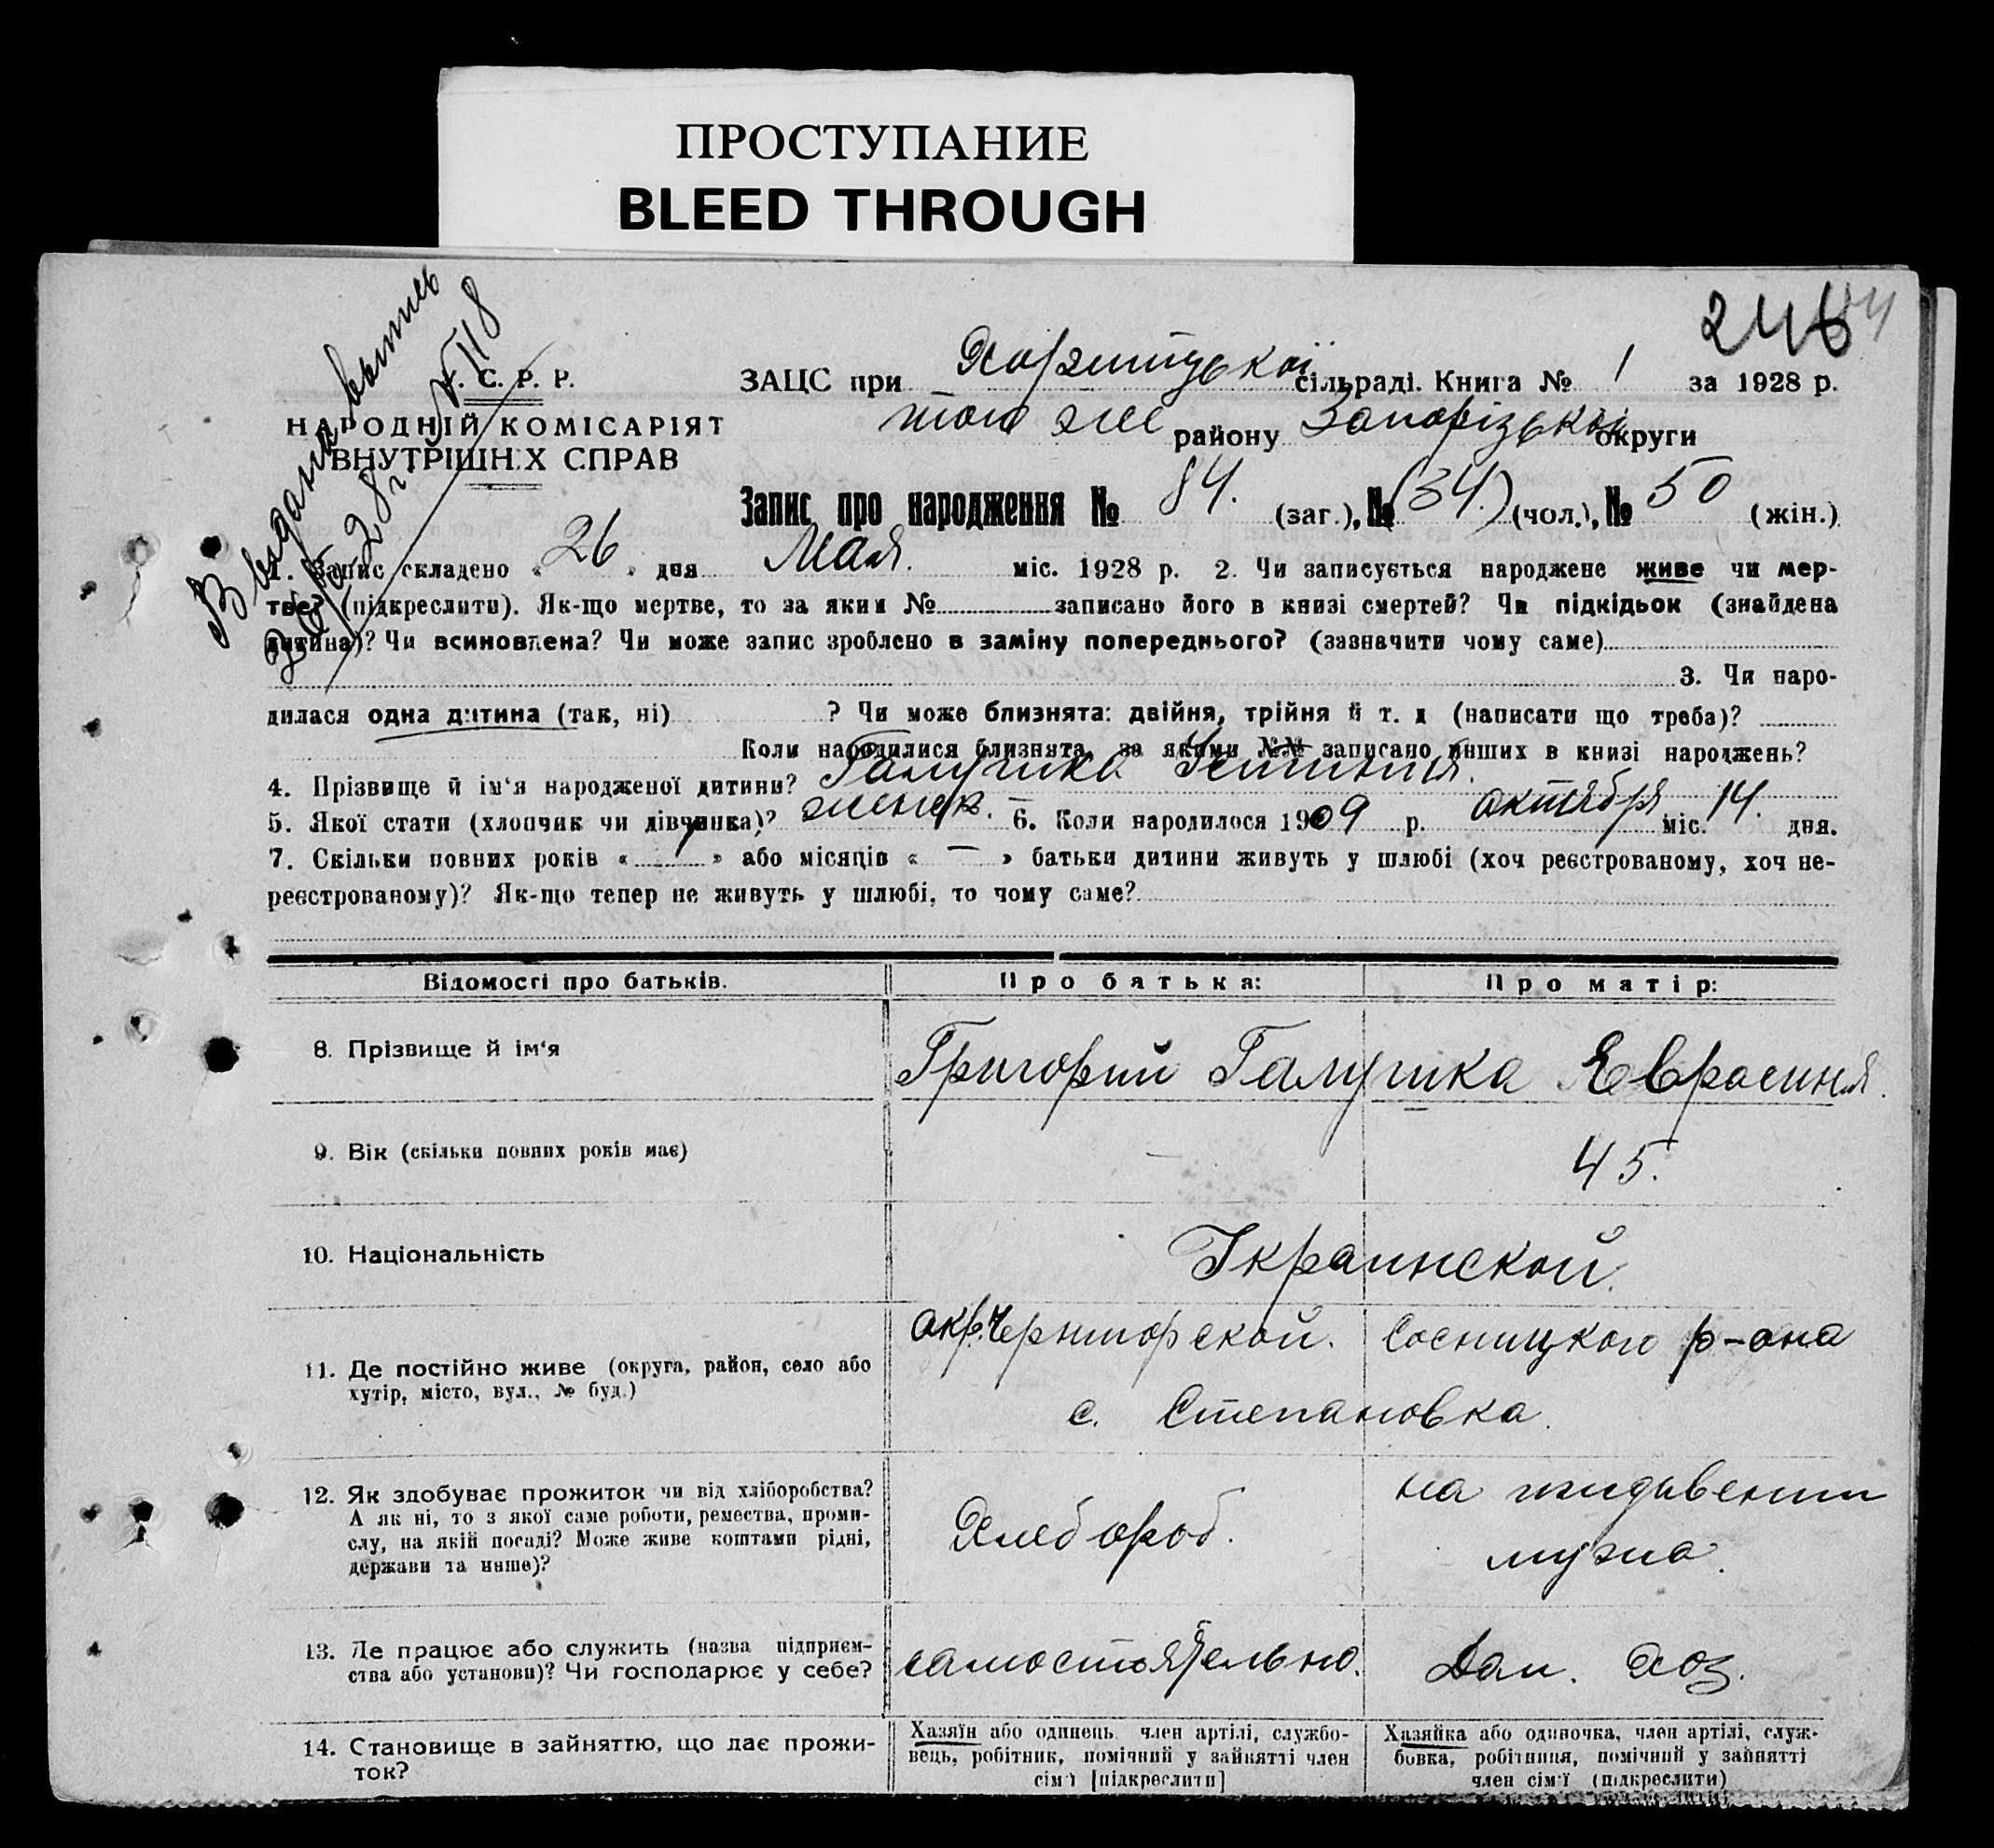 ПРОСТУПАНИЕ
BLEED THROUGH
246
Выдана выпись
26/5 28 г. № 118
У. С. Р. Р.
НАРОДНІЙ КОМІСАРІЯТ
ВНУТРІШНІХ СПРАВ
ЗАЦС при Хортицької сільраді. Книга № 1 за 1928 р.
того же району Запорізької округи
Запис про народження № 84. (заг.), № (34.) (чол.), № 50 (жін.)
1. Запис складено „ 26 „ дня Мая. міс. 1928 р. 2. Чи записується народжене живе чи мер-
тве? (підкреслити). Як-що мертве, то за яким № записано його в книзі смертей? Чи підкідьок (знайдена
дитина)? Чи всиновлена? Чи може запис зроблено в заміну попереднього? (зазначити чому саме)
3. Чи наро-
дилася одна дитина (так, ні) ? Чи може близнята: двійня, трійня й т. д (написати що треба)?
Коли народилися близнята, за якими №№ записано инших в книзі народжень?
4. Прізвище й ім‘я народженої дитини? Галушка
5. Якої стати (хлопчик чи дівчинка)? женск. 6. Коли народилося 1909 р. октября міс. 14. дня.
7. Скільки повних років « » або місяців « — » батьки дитини живуть у шлюбі (хоч реєстрованому, хоч не-
реєстрованому)? Як-що тепер не живуть у шлюбі, то чому саме?
Відомості про батьків. Про батька: Про матір:
8. Прізвище й ім‘я Григорий Галушка Евросиния.
9. Вік (скільки повних років має) — 45.
10. Національність Украинской.
11. Де постійно живе (округа, район, село або
хутір, місто, вул., № буд.)
окр. Черниговской. Сосницкого р-она
с. Степановка.
12. Як здобуває прожиток чи від хліборобства?
А як ні, то з якої саме роботи, ремества, проми-
слу, на якій посаді? Може живе коштами рідні,
держави та инше)?
Хлебороб.
на иждивении
мужа.
13. Де працює або служить (назва підприєм-
ства або установи)? Чи господарює у себе?
самостоятельно. Дом. хоз.
14. Становище в зайняттю, що дає прожи-
ток?
Хазяїн або одинець член артілі, службо-
вець, робітник, помічний у зайнятті член
сім‘ї [підкреслити]
Хазяйка або одиночка, член артілі, служ-
бовка, робітниця, помічний у зайнятті
член сім‘ї (підкреслити)